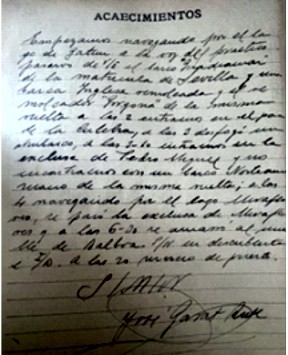 ACAECIMIENTOS
Empezamos navegando por el la
go de Gatun a la voz del practico
pasaron de 1/2 el barco
de la matricula de Sevilla y una
barca Inglesa remolcada y el re
molcador "Gorgona" de la misma
vuelta a las 2 entramos en el paso
de la Culebra, a las 3
a las 3-30 entramos en la
exclusa de Pedro Miguel y nos
encontramos con un barco Norteame
ricano de la misma vuelta; a las
4 navegando por el lago Miraflo
res, se pasó la exclusa de Miraflo
res y a las 6-30 se amarró al mue
lle de Balboa
A las 20 de puerto.
José